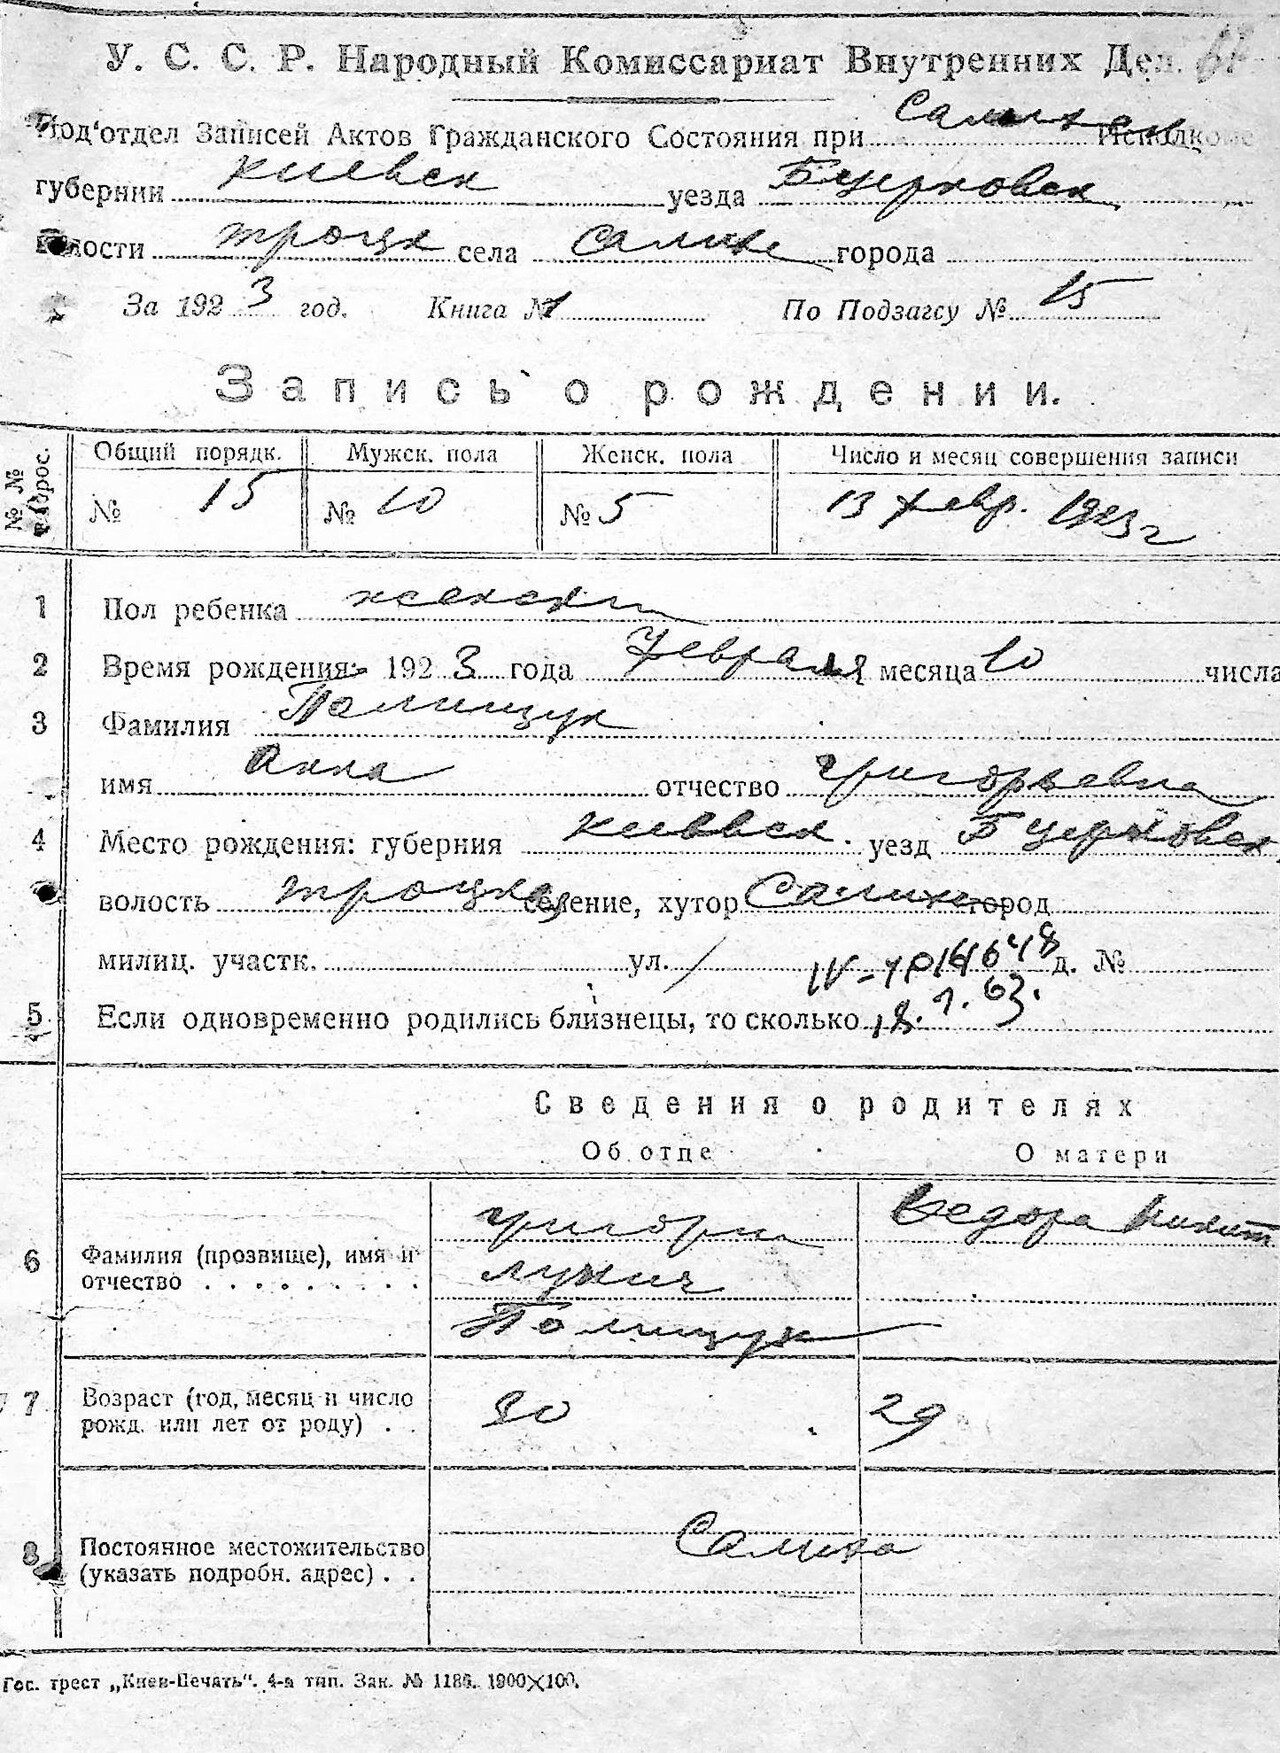 У. С. С. Р. Народный Комиссариат Внутренних Дел.
Под'отдел Записей Актов Гражданского Состояния при
губернии Киевск уезда Бцерковск
волости Троцк села города
За 1923 год. Книга № 1 По Подзагсу № 15
Запись о рождении.
№ № вопрос. Общий порядк. Мужск. пола Женск. пола Число и месяц совершения записи
№ 15 № 10 № 5 13 февр. 1923 г
1 Пол ребенка женски
2 Время рождения: 1923 года февраля месяца 10 числа
3 Фамилия Полищук
имя Анна отчество Григорьевна
4 Место рождения: губерния Киевск. уезд Бцерковск
волость Троцкая селение, хутор город
милиц. участк. ул. д. №
5 Если одновременно родились близнецы, то сколько
18.1.63.
Сведения о родителях
Об отце О матери
6 Фамилия (прозвище), имя и отчество Григори Лукич Полищук Федора Никит
7 Возраст (год, месяц и число рожд. или лет от роду) 30 29
8 Постоянное местожительство (указать подробн. адрес)
Гос. трест „Киев-Печать“. 4-я тип. Зак. № 1186. 1900×100.